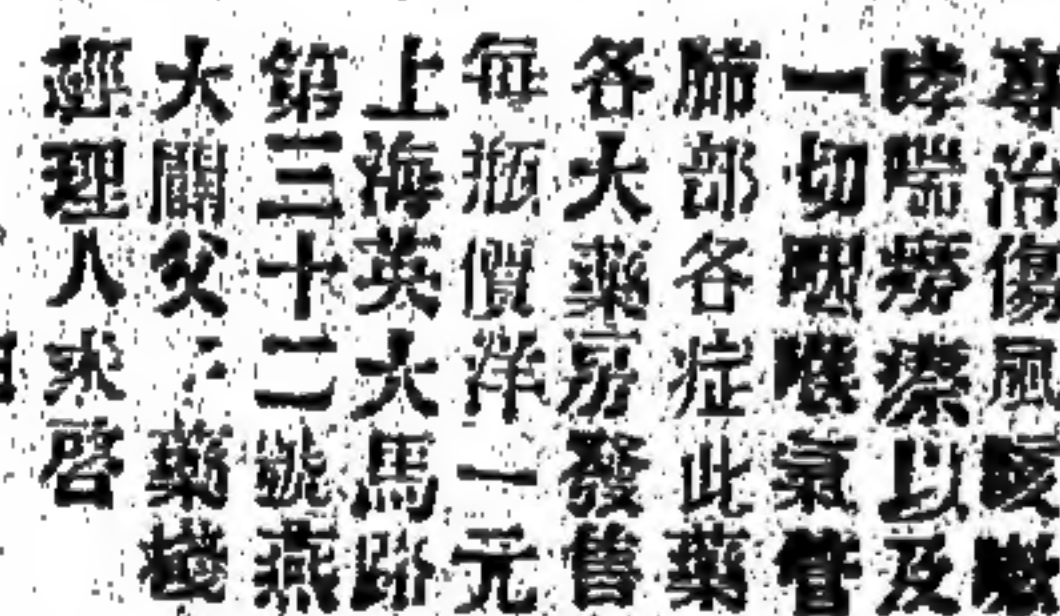 專治傷風咳嗽
哮喘癆瘵以及
一切咽喉氣管
肺部各症此藥
各大藥房發售
每瓶價洋一元
上海英大馬路
第三十二號燕
大關父藥樓
經理人啓